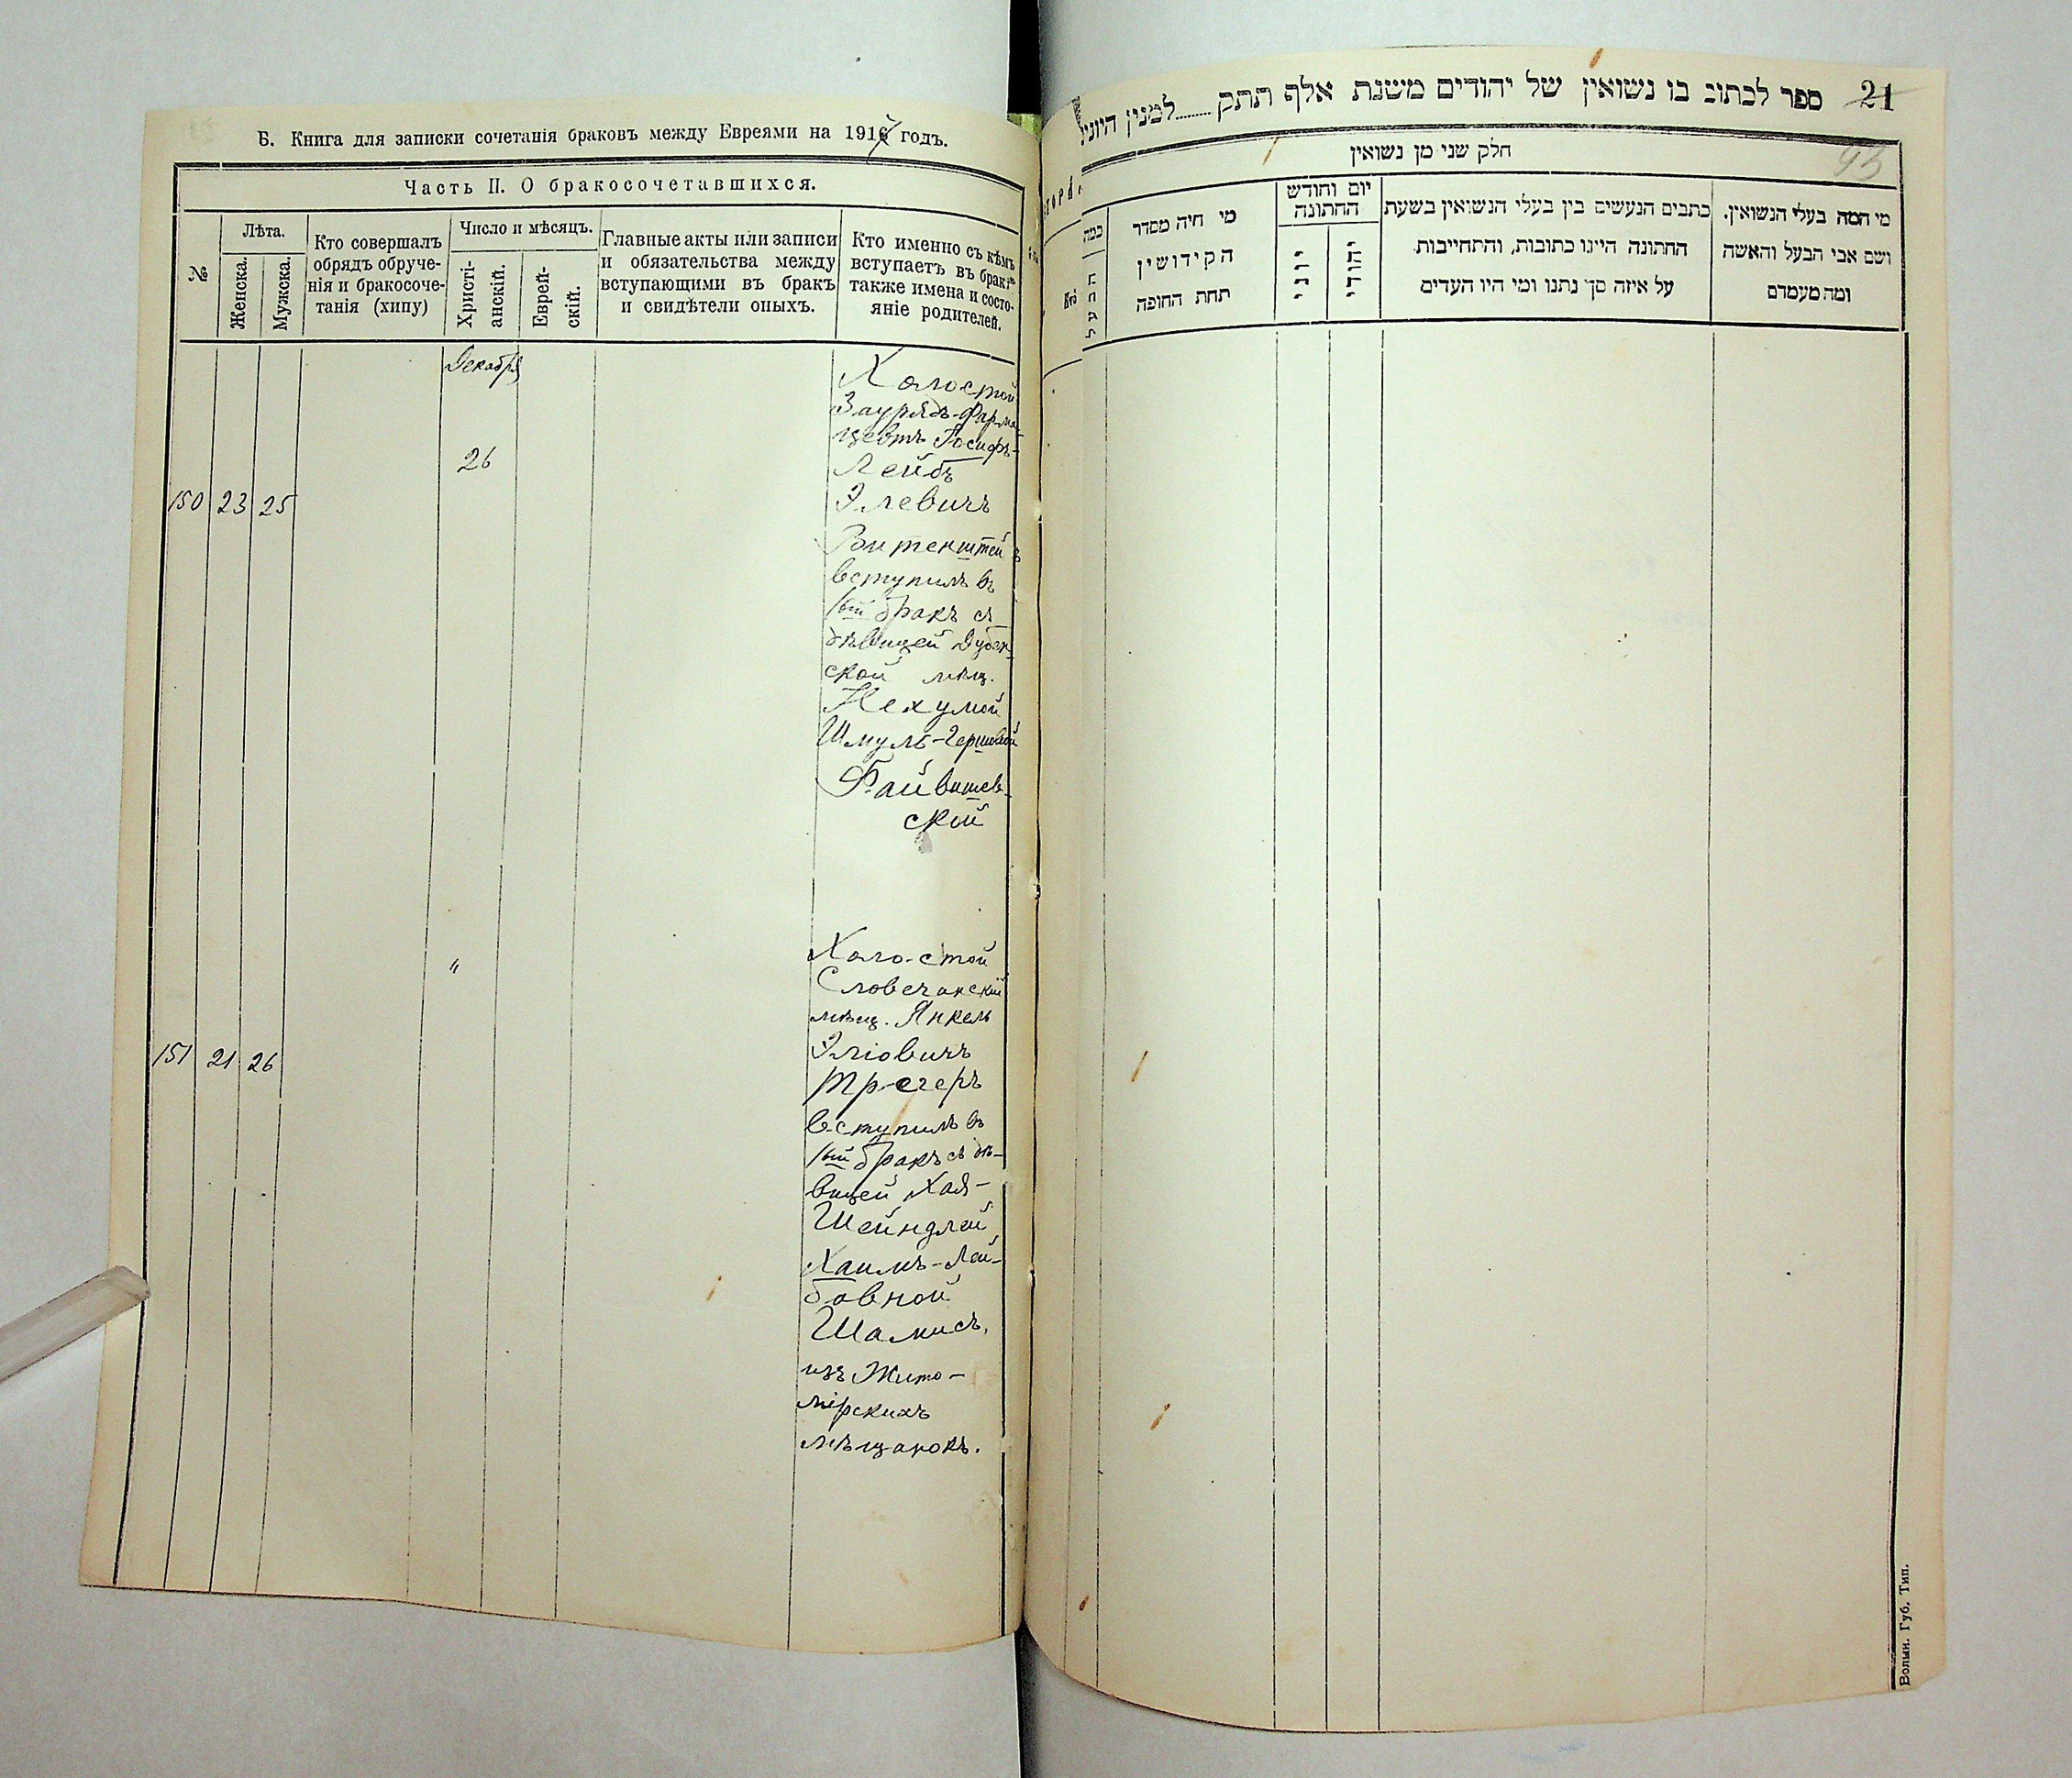 Б. Книга для записки сочетанія браковъ между Евреями на 1917 годъ.
Часть II. О бракосочетавшихся.
№
Лѣта.
Женска.
Мужска.
Кто совершалъ
обрядъ обруче-
нія и бракосоче-
танія (хипу)
Число и мѣсяцъ.
Христі-
анскій.
Еврей-
скій.
Главные акты или записи
и обязательства между
вступающими въ бракъ
и свидѣтели оныхъ.
Кто именно съ кѣмъ
вступаетъ въ бракъ
также имена и состо-
яніе родителей.
Декабря
26
150 23 25
Холостой
Заурядъ-Фарма-
цевтъ Іосифъ-
Лейбъ
Элевичъ
Витенштейнъ
вступилъ въ
1ый бракъ съ
дѣвицей Дубен-
ской мѣщ.
Нехумой
Шмуль-Гершовой
Файвишев-
ской
"
151 21 26
Холостой
Словечанскій
мѣщ. Янкель
Эліовичъ
Трегеръ
вступилъ въ
1ый бракъ съ дѣ-
вицей Хая-
Шейндлей
Хаимъ-Лей-
бовной
Шамисъ,
изъ Жито-
мірскихъ
мѣщанокъ.
21
ספר לכתוב בו נשואין של יהודים משנת אלף תתק........למנין היוני
93
חלק שני מן נשואין
מי המה בעלי הנשואין.
ושם אבי הבעל והאשה
ומה מעמדם
כתבים הנעשים בין בעלי הנשואין בשעת
החתונה היינו כתובות, והתחייבות
על איזה סך נתנו ומי היו העדים
יום וחודש
החתונה
יהודי
יוני
מי היה מסדר
הקידושין
תחת החופה
כמה
הבעל
Волын. Губ. Тип.